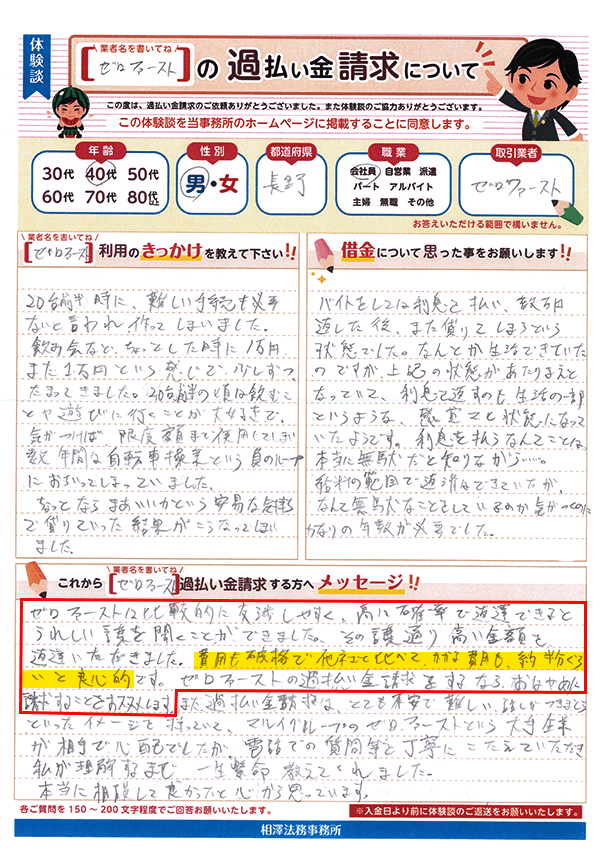 体験談
業者名を書いてね
[ゼロファースト]の過払い金請求について
この度は、過払い金請求のご依頼ありがとうございました。また体験談のご協力ありがとうございます。
この体験談を当事務所のホームページに掲載することに同意します。
年齢
30代 40代 50代
60代 70代 80代
性別
男・女
都道府県
長野
職業
会社員 自営業 派遣
パート アルバイト
主婦 無職 その他
取引業者
ゼロファースト
お答えいただける範囲で構いません。
業者名を書いてね
[ゼロファースト]利用のきっかけを教えて下さい!!
20台前半時に、難しい手続も必要
ないと言われ作ってしまいました。
飲み会など、ちょっとした時に1万円
また1万円という感じで、少しずつ
たまってきました。20台前半の頃は飲むこ
とや遊びに行くことが大好きで、
気がつけば、限度額まで使用してしまい
数年間な自転車操業という負のループ
におちいってしまっていました。
ちょっとならまあいいかという安易な気持ち
で借りていった結果がこうなってしまい
ました。
借金について思った事をお願いします!!
バイトをしては利息を払い、数万円
返した後、また借りてしまうという
状態でした。なんとか生活できていた
のですが、上記の状態があたりまえと
なっていて、利息を返すのも生活の一部
というような、感覚マヒ状態になって
いたようです。利息を払うなんてことは
本当に無駄だと知りながら……。
給料の範囲で返済はできていたが、
なんて無駄なことをしているのか気がつくのに
かなりの年数が必要でした。
業者名を書いてね
これから[ゼロファースト]過払い金請求する方へメッセージ!!
ゼロファーストは比較的に交渉しやすく、高い確率で返還できると
うれしい話を聞くことができました。その話通り高い金額を
返還いただきました。費用も破格で他社と比べて、かかる費用も、約半分ぐら
いと良心的です。ゼロファーストの過払い金請求をするなら、おなやみに
請求することをおススメします。また、過払い金請求は、とても不安で難しい、話しができそう
といったイメージを持っていて、マルイグループのゼロファーストという大手企業
が相手で心配でしたが、電話での質問等も丁寧にこたえていただき
私が理解するまで、一生懸命教えてくれました。
本当に相談して良かったと心から思っています。
各ご質問を150～200文字程度でご回答お願いいたします。
※入金日より前に体験談のご返送をお願いいたします。
相澤法務事務所